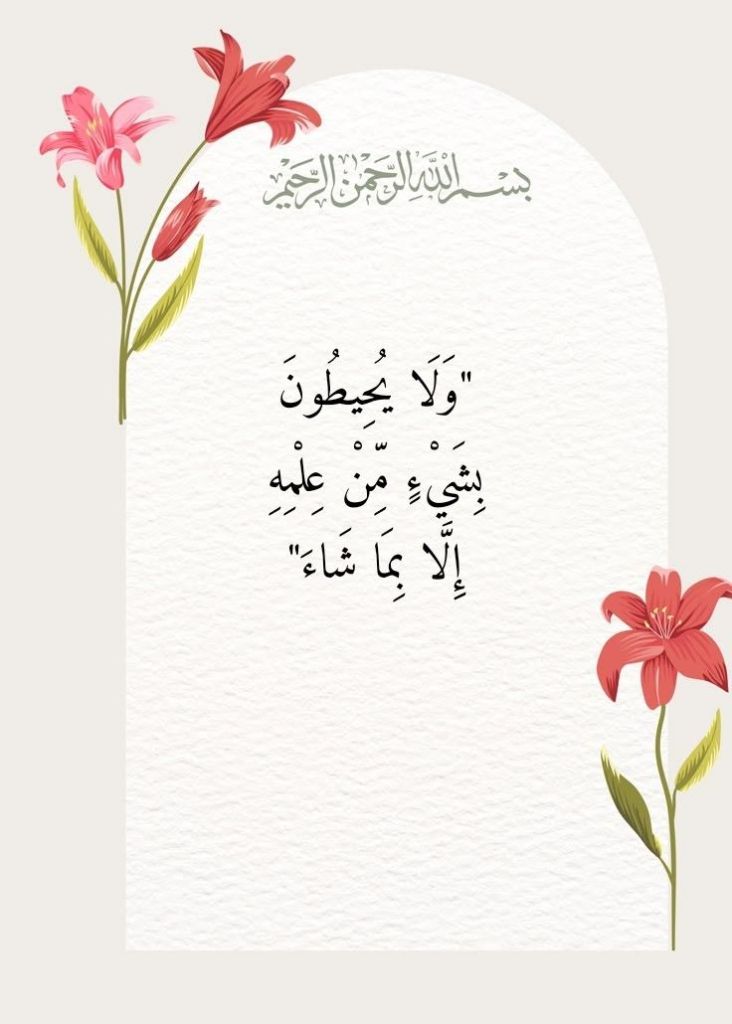 بِسْمِ اللَّهِ الرَّحْمَنِ الرَّحِيمِ
"وَلَا يُحِيطُونَ
بِشَيْءٍ مِّنْ عِلْمِهِ
إِلَّا بِمَا شَاءَ"